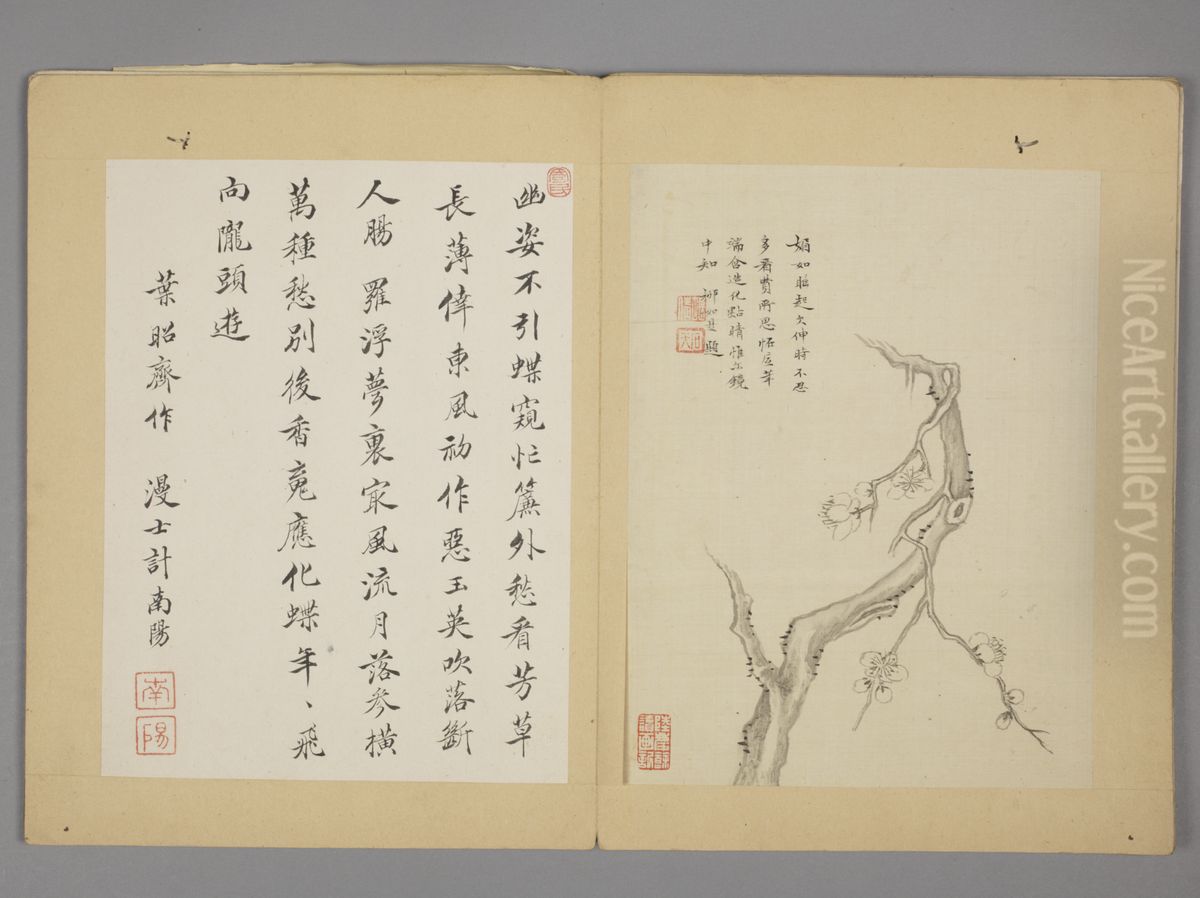 媚如睡起欠伸時不忍
多看費所思怪底筆
端含造化點睛惟鏡
中知 柳如是題
幽姿不引蝶窺忙簾外愁看芳草
長薄倖東風初作惡玉英吹落斷
人腸 羅浮夢裏㝡風流月落參橫
萬種愁別後香魂應化蝶年、飛
向隴頭遊
葉昭齊作 漫士計南陽
南
陽
NiceArtGallery.com